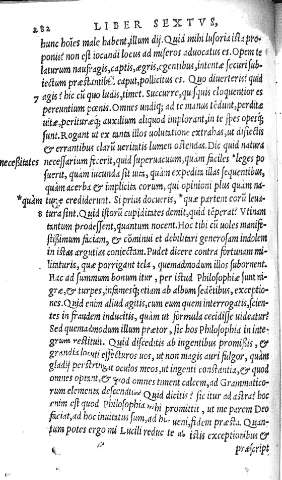 282 LIBER SEXTVS,
hunc hoíes male habent, illum dij. Quid mihi lusoria ista pro-
ponis? non est iocandi locus ad miseros aduocatus es. Opem te
laturum naufragis, captis, ægris, egentibus, intentæ securi subie-
ctum præstantibus caput, pollicitus es. Quo diuerteris? quid
7 agis? hic cū quo ludis, timet. Succurre, qu'squis eloquentior es
pereuntium pœnis. Omnes undiq; ad te manus tēdunt, perditæ
uitæ, perituræq; auxilium aliquod implorant, in te spes opesq;
sunt. Rogant ut ex tanta illos uolutatione extrahas, ut disiectis
& errantibus clarū ueritatis lumen ostendas. Dic quid natura
necessitates necessarium fecerit, quid superuacuum, quàm faciles *leges po
suerit, quàm iucunda sit uita, quàm expedita illas sequentibus,
quàm acerba & implicita eorum, qui opinioni plus quàm na-
quàm turæ crediderunt. Si prius docueris, *quæ partem eorū leua-
8 tura sint. Quid istorū cupiditates demit, quid tēperat? Vtinam
tantum prodessent, quantum nocent. Hoc tibi cū uoles manife-
stissimum faciam, & cōminui et debilitari generosam indolem
in istas argutias coniectam. Pudet dicere contra fortunam mi-
lituris, quæ porrigant tela, quemadmodum illos subornent.
Hac ad summum bonum itur, per istud Philosophiæ sunt ni-
græ, & turpes, infamesq; etiam ad album sedētibus, exceptio-
nes. Quid enim aliud agitis, cum eum quem interrogatis, scien-
tes in fraudem inducitis, quàm ut formula cecidisse uideatur?
Sed quemadmodum illum prætor, sic hos Philosophia in inte-
grum restituit. Quid disceditis ab ingentibus promissis, &
grandia locuti effecturos uos, ut non magis auri fulgor, quàm
gladij perstringat oculos meos, ut ingenti constantia, & quod
omnes optant, & quod omnes timent calcem, ad Grammatico-
rum elementa descenditis? Quid dicitis? sic itur ad astra? hoc
enim est quod Philosophia mihi promittit, ut me parem Deo
faciat, ad hoc inuitatus sum, ad hoc ueni, fidem præsta. Quan-
tum potes ergo mi Lucili reduc te ab istis exceptionibus &
præscript